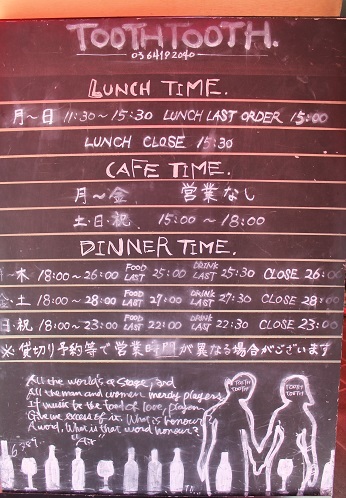 TOOTHTOOTH.
03 6419 2040
LUNCH TIME.
月～日 11:30～15:30 LUNCH LAST ORDER 15:00
LUNCH CLOSE 15:30
CAFE TIME.
月～金 営業なし
土・日・祝 15:00～18:00
DINNER TIME.
～木 18:00～26:00 FOOD LAST 25:00 DRINK LAST 25:30 CLOSE 26:00
金・土 18:00～28:00 FOOD LAST 27:00 DRINK LAST 27:30 CLOSE 28:00
日・祝 18:00～23:00 FOOD LAST 22:00 DRINK LAST 22:30 CLOSE 23:00
※貸切り予約等で営業時間が異なる場合がございます
All the world's a stage, and
All the man and women merely players
If music be the food of love, play on
Give me excess of it. What is honour?
A word. What is that word honour?
TOOTH TOOTH
TOOTH TOOTH